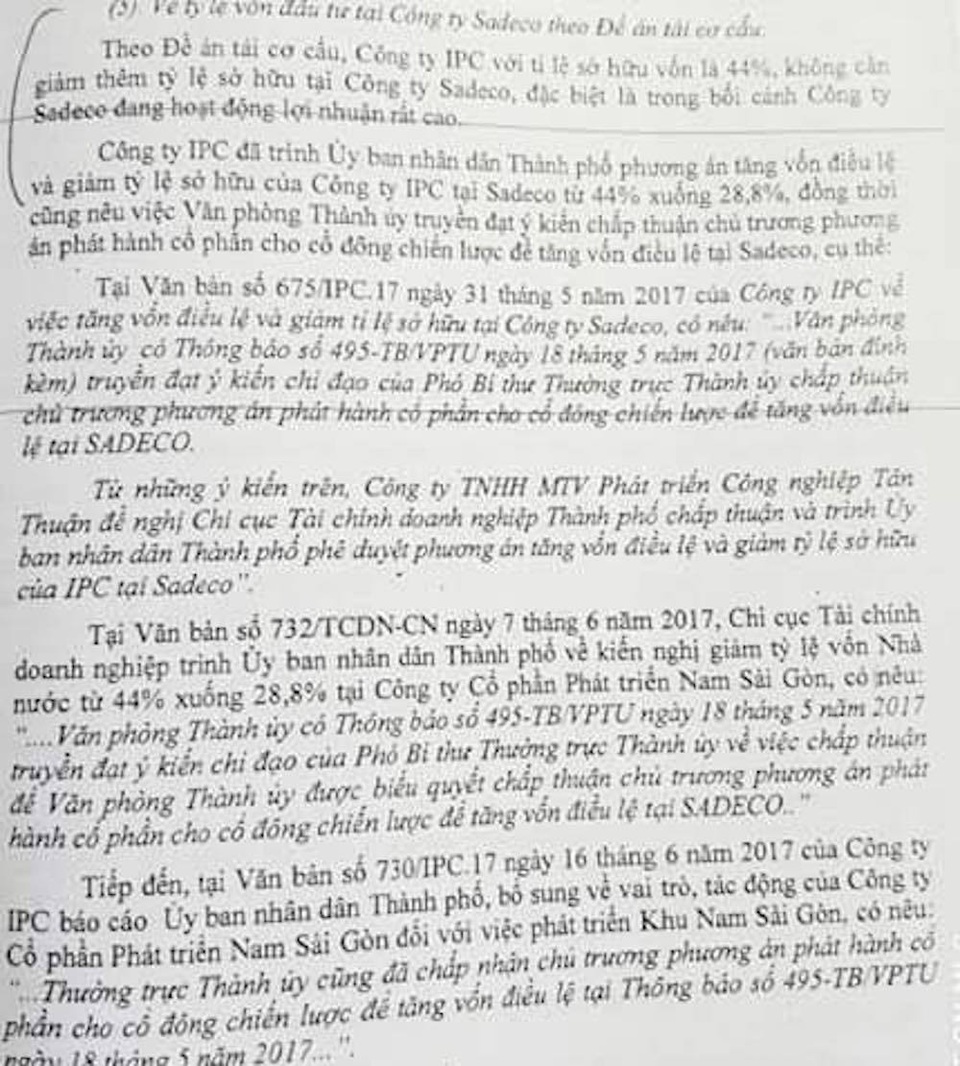 (5). Về tỷ lệ vốn đầu tư tại Công ty Sadeco theo Đề án tái cơ cấu.
Theo Đề án tái cơ cấu, Công ty IPC với tỉ lệ sở hữu vốn là 44%, không cần
giảm thêm tỷ lệ sở hữu tại Công ty Sadeco, đặc biệt là trong bối cảnh Công ty
Sadeco đang hoạt động lợi nhuận rất cao.
Công ty IPC đã trình Ủy ban nhân dân Thành phố phương án tăng vốn điều lệ
và giảm tỷ lệ sở hữu của Công ty IPC tại Sadeco từ 44% xuống 28,8%, đồng thời
cũng nêu việc Văn phòng Thành ủy truyền đạt ý kiến chấp thuận chủ trương phương
án phát hành cổ phần cho cổ đông chiến lược để tăng vốn điều lệ tại Sadeco, cụ thể:
Tại Văn bản số 675/IPC.17 ngày 31 tháng 5 năm 2017 của Công ty IPC về
việc tăng vốn điều lệ và giảm tỉ lệ sở hữu tại Công ty Sadeco, có nêu: "...Văn phòng
Thành ủy có Thông báo số 495-TB/VPTU ngày 18 tháng 5 năm 2017 (văn bản đính
kèm) truyền đạt ý kiến chỉ đạo của Phó Bí thư Thường trực Thành ủy chấp thuận
chủ trương phương án phát hành cổ phần cho cổ đông chiến lược để tăng vốn điều
lệ tại SADECO.
Từ những ý kiến trên, Công ty TNHH MTV Phát triển Công nghiệp Tân
Thuận đề nghị Chi cục Tài chính doanh nghiệp Thành phố chấp thuận và trình Ủy
ban nhân dân Thành phố phê duyệt phương án tăng vốn điều lệ và giảm tỷ lệ sở hữu
của IPC tại Sadeco".
Tại Văn bản số 732/TCDN-CN ngày 7 tháng 6 năm 2017, Chi cục Tài chính
doanh nghiệp trình Ủy ban nhân dân Thành phố về kiến nghị giảm tỷ lệ vốn Nhà
nước từ 44% xuống 28,8% tại Công ty Cổ phần Phát triển Nam Sài Gòn, có nêu:
"....Văn phòng Thành ủy có Thông báo số 495-TB/VPTU ngày 18 tháng 5 năm 2017
truyền đạt ý kiến chỉ đạo của Phó Bí thư Thường trực Thành ủy về việc chấp thuận
để Văn phòng Thành ủy được biểu quyết chấp thuận chủ trương phương án phát
hành cổ phần cho cổ đông chiến lược để tăng vốn điều lệ tại SADECO.."
Tiếp đến, tại Văn bản số 730/IPC.17 ngày 16 tháng 6 năm 2017 của Công ty
IPC báo cáo Ủy ban nhân dân Thành phố, bổ sung về vai trò, tác động của Công ty
Cổ phần Phát triển Nam Sài Gòn đối với việc phát triển Khu Nam Sài Gòn, có nêu:
"...Thường trực Thành ủy cũng đã chấp nhận chủ trương phương án phát hành cổ
phần cho cổ đông chiến lược để tăng vốn điều lệ tại Thông báo số 495-TB/VPTU
ngày 18 tháng 5 năm 2017...".